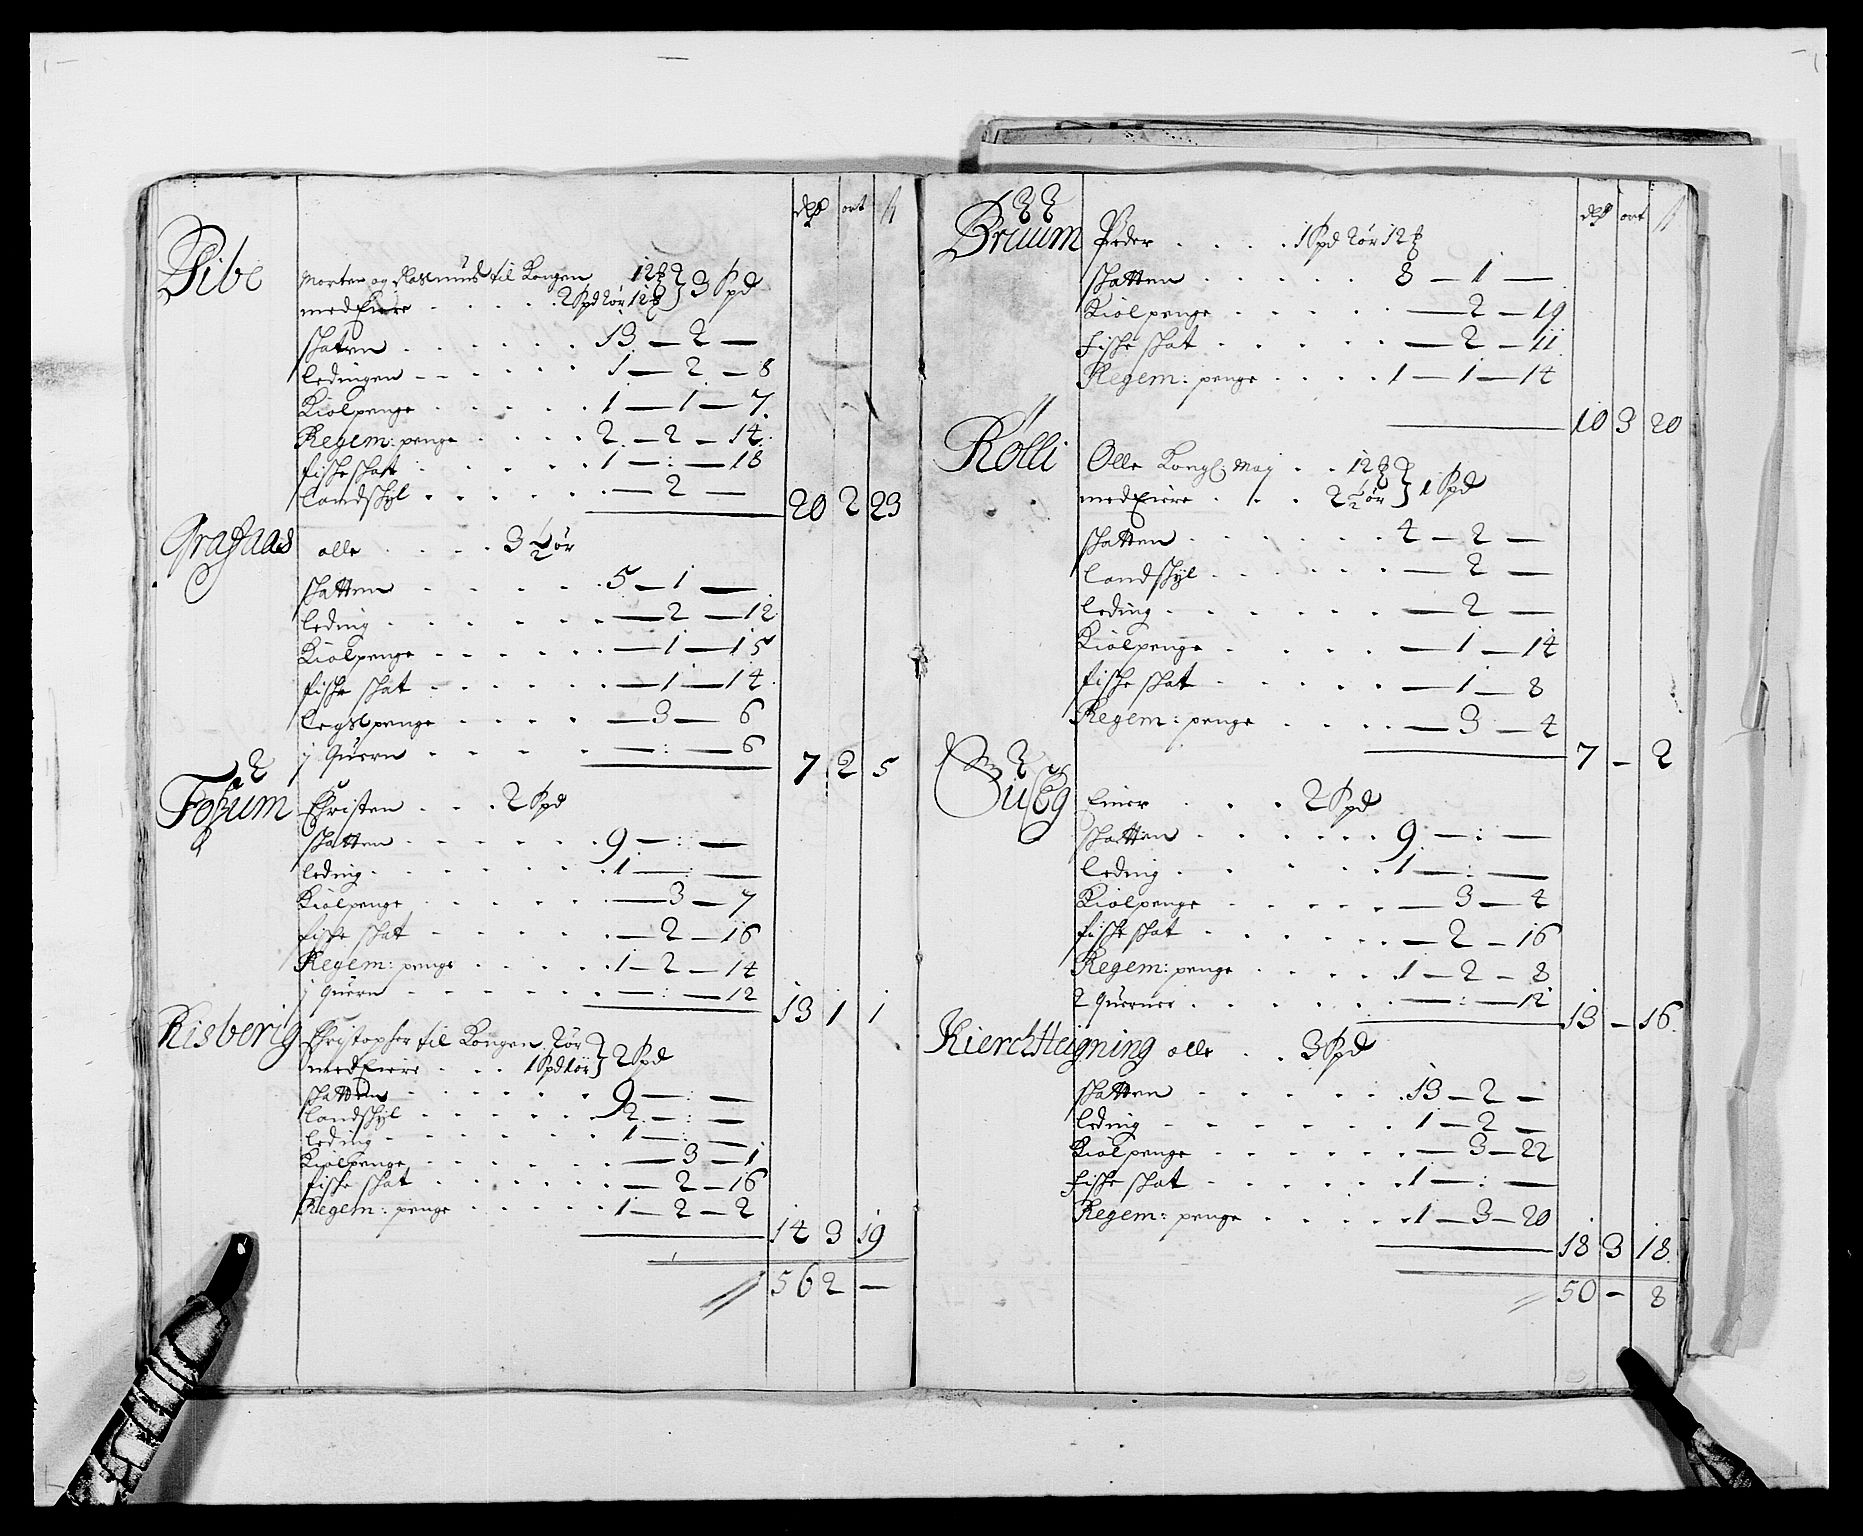 dlr ort ß
Vibe
Morten og Rasmus til Kongen 12 ℔ } 3 Spd
med Eiere . . . . 2 Spd 2 ør 12 ℔
skaten . . . . . . 13 — 2 —
ledingen . . . . . . 1 — 2 — 8
Kiølpenge . . . . . 1 — 1 — 7
Regem: penge . . . . 2 — 2 — 14
fiske skatt . . . . . 1 — : — 18
landskyl . . . . . . — 2 —
20 2 23
Grafaas olle . . . . 3 ½ ør
skatten . . . . . 5 — 1 —
leding . . . . . . — 2 — 12
Kiølpenge . . . . . — 1 — 15
fiske skat . . . . . . — 1 — 14
legspenge . . . . — 3 — 6
j Quern . . . . . — : — 6
7 2 5
2
Fosum Christen . . . 2 Spd
skatten . . . . . . 9 — : —
leding . . . . . . . 1 — : —
Kiølpenge . . . . . . — 3 — 7
fiske skat . . . . . . — 2 — 16
Regem: penge . . . . . 1 — 2 — 14
j Quern . . . . . . — : — 12
13 1 1
Risberig Christopher til Kongen 2 ør } 2 Spd
med Eiere . . . 1 Spd 1 ør
skatten . . . . . . 9 — : —
landskyl . . . . . . 2 — : —
leding . . . . . . 1 — : —
Kiølpenge . . . . . . — 3 — 1
fiske skat . . . . . . — 2 — 16
Regem: penge . . . . . 1 — 2 — 2
14 3 19
56 2 —
122
dlr ort ß
Bruum Peder . . . . 1 Spd 2 ør 12 ℔
skatten . . . . . . 8 — 1 —
Kiølpenge . . . . . — 2 — 19
Fiske skat . . . . . — 2 — 11
Regem: penge . . . . 1 — 1 — 14
10 3 20
Rølli Olle Kongl: May . . 12 ℔ } 1 Spd
med Eiere . . . 2 ½ ør
skatten . . . . . . 4 — 2 —
landskyl . . . . . . — 2 —
leding . . . . . . — 2 —
Kiølpenge . . . . . — 1 — 14
fiske skat . . . . . — 1 — 8
Regem: penge . . . . — 3 — 4
7 — 2
2
Einer . . . . 2 Spd
skatten . . . . . . 9 — : —
leding . . . . . . 1 — : —
Kiølpenge . . . . . — 3 — 4
fiske skat . . . . . . — 2 — 16
Regem: penge . . . . 1 — 2 — 8
2 Querner . . . . . . — : — 12
13 — 16
Kierchteigning olle . . 3 Spd
skatten . . . . . . 13 — 2 —
leding . . . . . . 1 — 2 —
Kiølpenge . . . . . . — 3 — 22
Fiske skat . . . . . . 1 — : —
Regem: penge . . . . 1 — 3 — 20
18 3 18
50 — 8